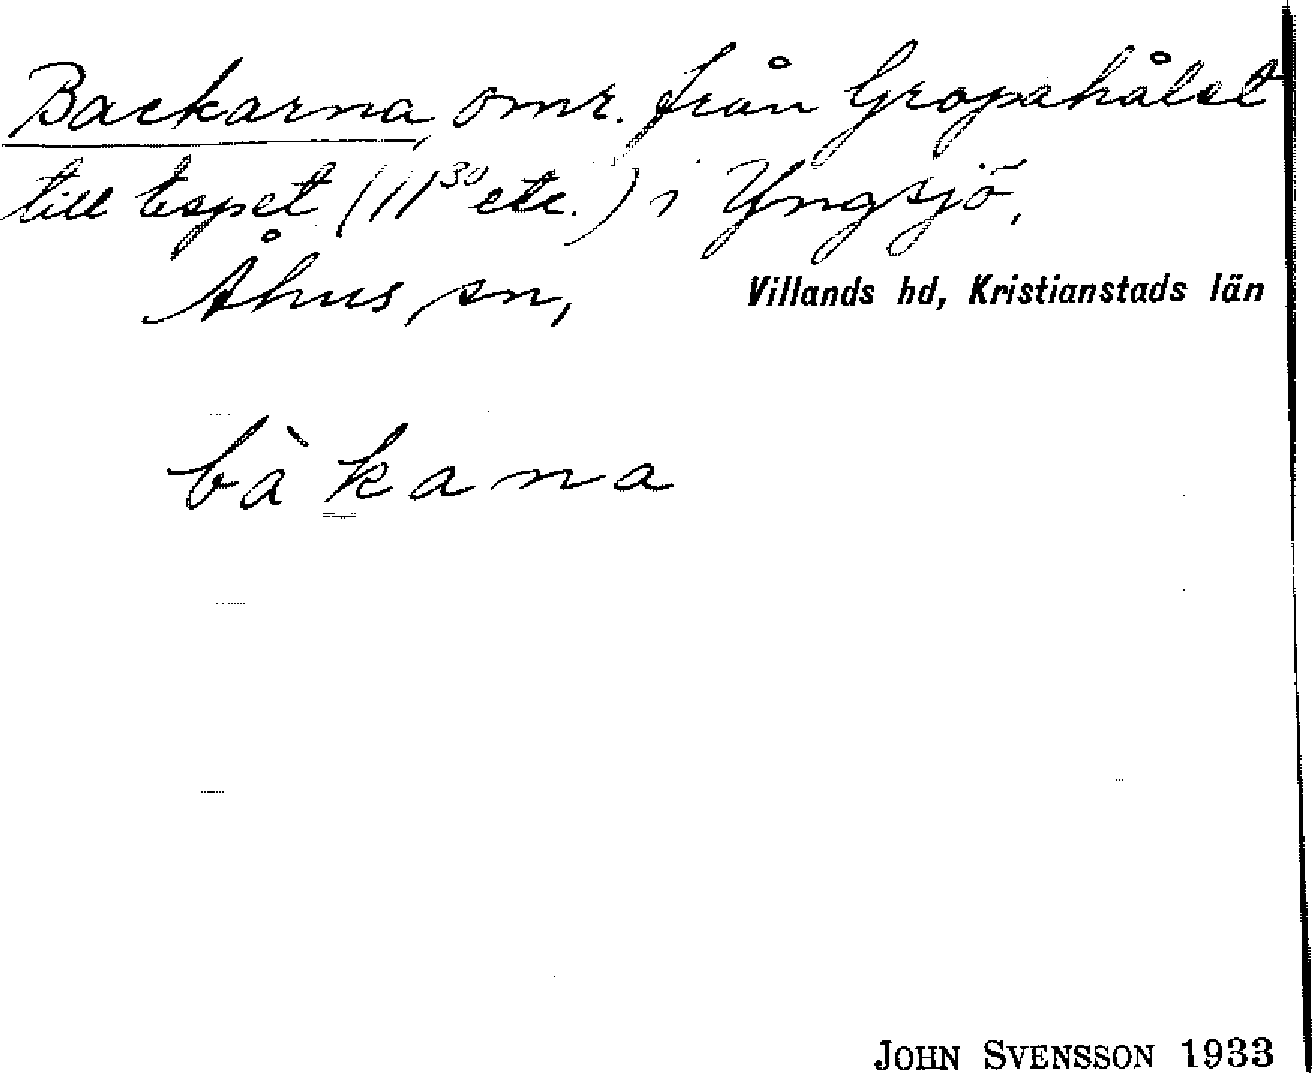 Backarna, omr. från Gropahålet
till Espet (11³⁰ etc.) i Yngsjö,
Åhus sn,
Villands hd, Kristianstads län
bàkana
JOHN SVENSSON 1933